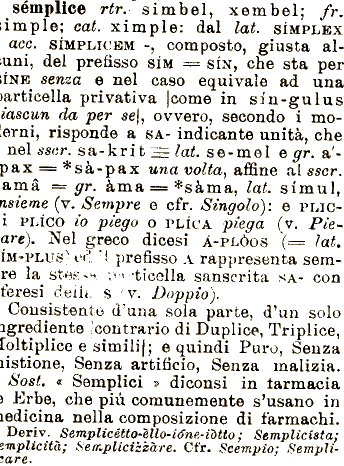 sémplice rtr. simbel, xembel; fr.
simple; cat. ximple: dal lat. SÍMPLEX
acc. SÍMPLICEM -, composto, giusta al-
uni, del prefisso SÍM = SÍN, che sta per
SÍNE senza e nel caso equivale ad una
particella privativa |come in sín-gulus
iascun da per se|, ovvero, secondo i mo-
lerni, risponde a SA- indicante unità, che
nel sscr. sa-krit = lat. se-mel e gr. a'-
pax = *sà-pax una volta, affine al sscr.
amâ = gr. àma = *sàma, lat. símul,
nsieme (v. Sempre e cfr. Singolo): e PLIC-
i PLÍCO io piego o PLÍCA piega (v. Pie-
are). Nel greco dicesi Á-PLÓOS (= lat.
ÍM-PLUS) ed prefisso A rappresenta sem-
re la stessa particella sanscrita SA- con
feresi della s v. Doppio).
Consistente d'una sola parte, d'un solo
ngrediente |contrario di Duplice, Triplice,
Moltiplice e simili|; e quindi Puro, Senza
nistione, Senza artificio, Senza malizia.
Sost. « Semplici » diconsi in farmacia
e Erbe, che più comunemente s'usano in
nedicina nella composizione di farmachi.
Deriv. Semplicétto-èllo-ióne-iòtto; Semplicista;
emplicità; Semplicizzàre. Cfr. Scempio; Sempli-
care.